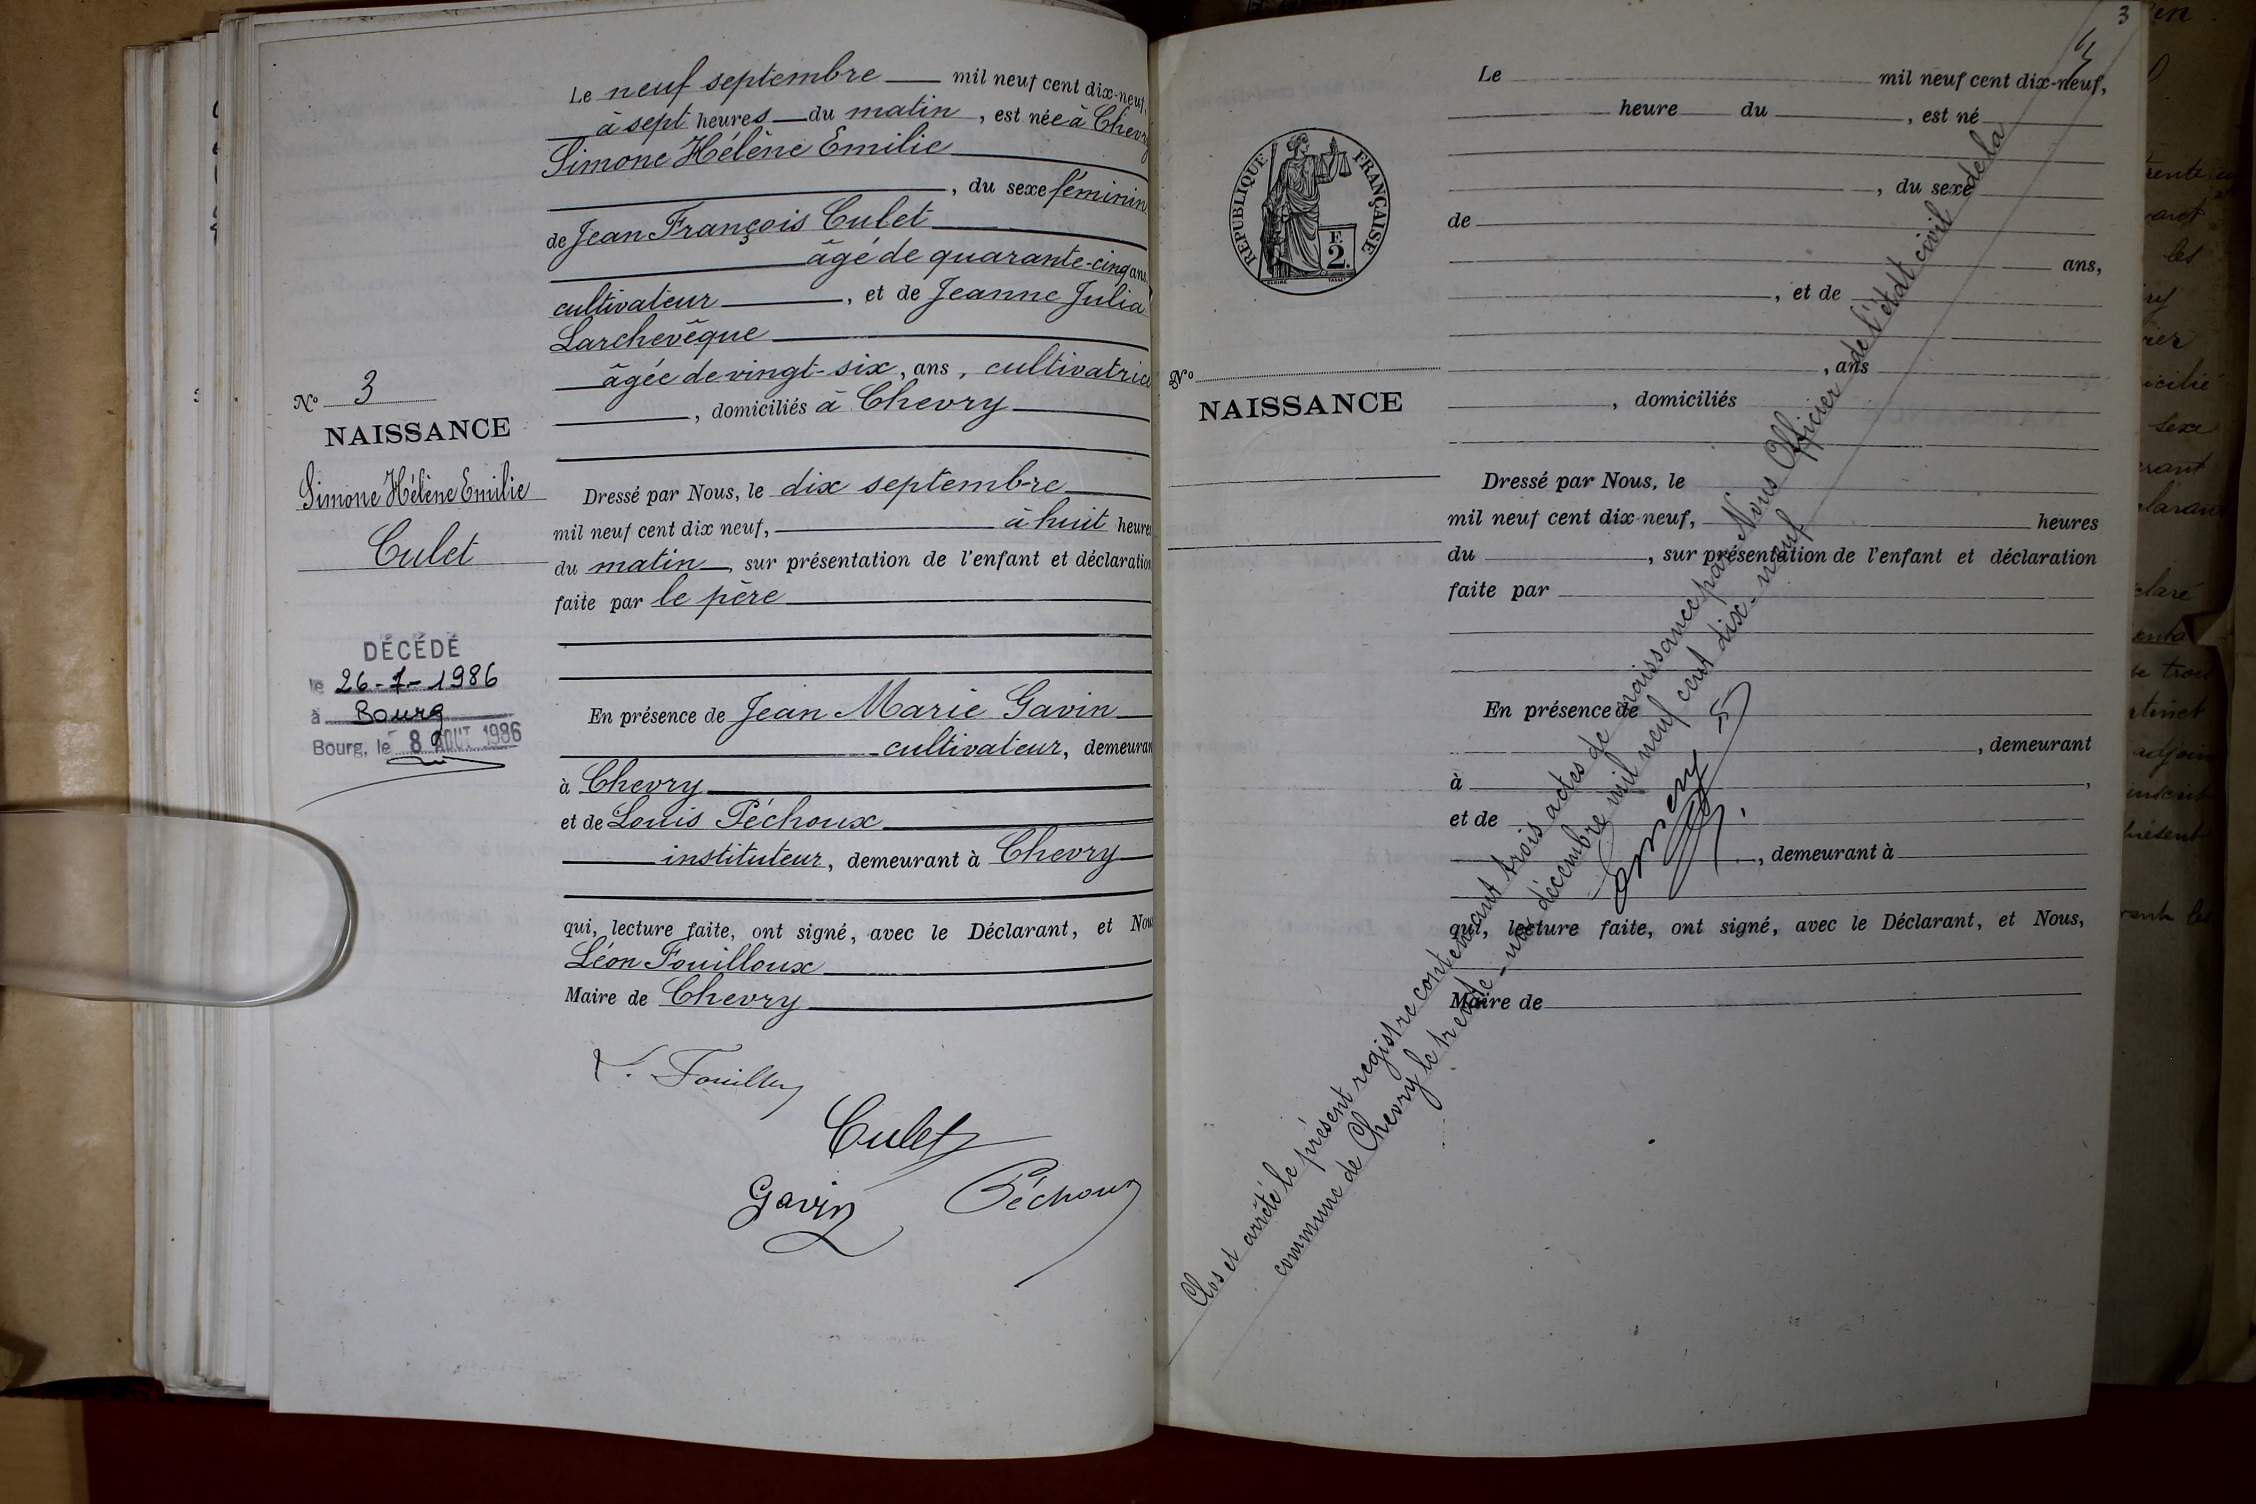 Le neuf septembre mil neuf cent dix-neuf,
à sept heures du matin, est née à Chevry
Simone Hélène Emilie
, du sexe féminin
de Jean François Culet
âgé de quarante-cinq ans
cultivateur, et de Jeanne Julia
Larchevêque
âgée de vingt-six, ans, cultivatrice
, domiciliés à Chevry
N° 3
NAISSANCE
Simone Hélène Emilie
Culet
Dressé par Nous, le dix septembre
mil neuf cent dix neuf, à huit heures
du matin, sur présentation de l'enfant et déclaration
faite par le père
DÉCÉDÉ
le 26-7-1986
à Bourg
Bourg, le 8 AOUT 1986
En présence de Jean Marie Gavin
cultivateur, demeurant
à Chevry
et de Louis Péchoux
instituteur, demeurant à Chevry
qui, lecture faite, ont signé, avec le Déclarant, et Nous
Léon Fouilloux
Maire de Chevry
L. Fouilloux
Culet
Gavin
Péchoux
3
Le mil neuf cent dix-neuf,
heure du , est né
RÉPUBLIQUE FRANÇAISE
F.
2.
, du sexe
de
ans,
, et de
, ans
N°
NAISSANCE
, domiciliés
Dressé par Nous, le
mil neuf cent dix-neuf, heures
du , sur présentation de l'enfant et déclaration
faite par
En présence de
, demeurant
à ,
et de
, demeurant à
qui, lecture faite, ont signé, avec le Déclarant, et Nous,
Maire de
Clos et arrêté le présent registre contenant trois actes de naissance par Nous Officier de l'état civil de la
commune de Chevry le trente-un décembre mil neuf cent dix-neuf